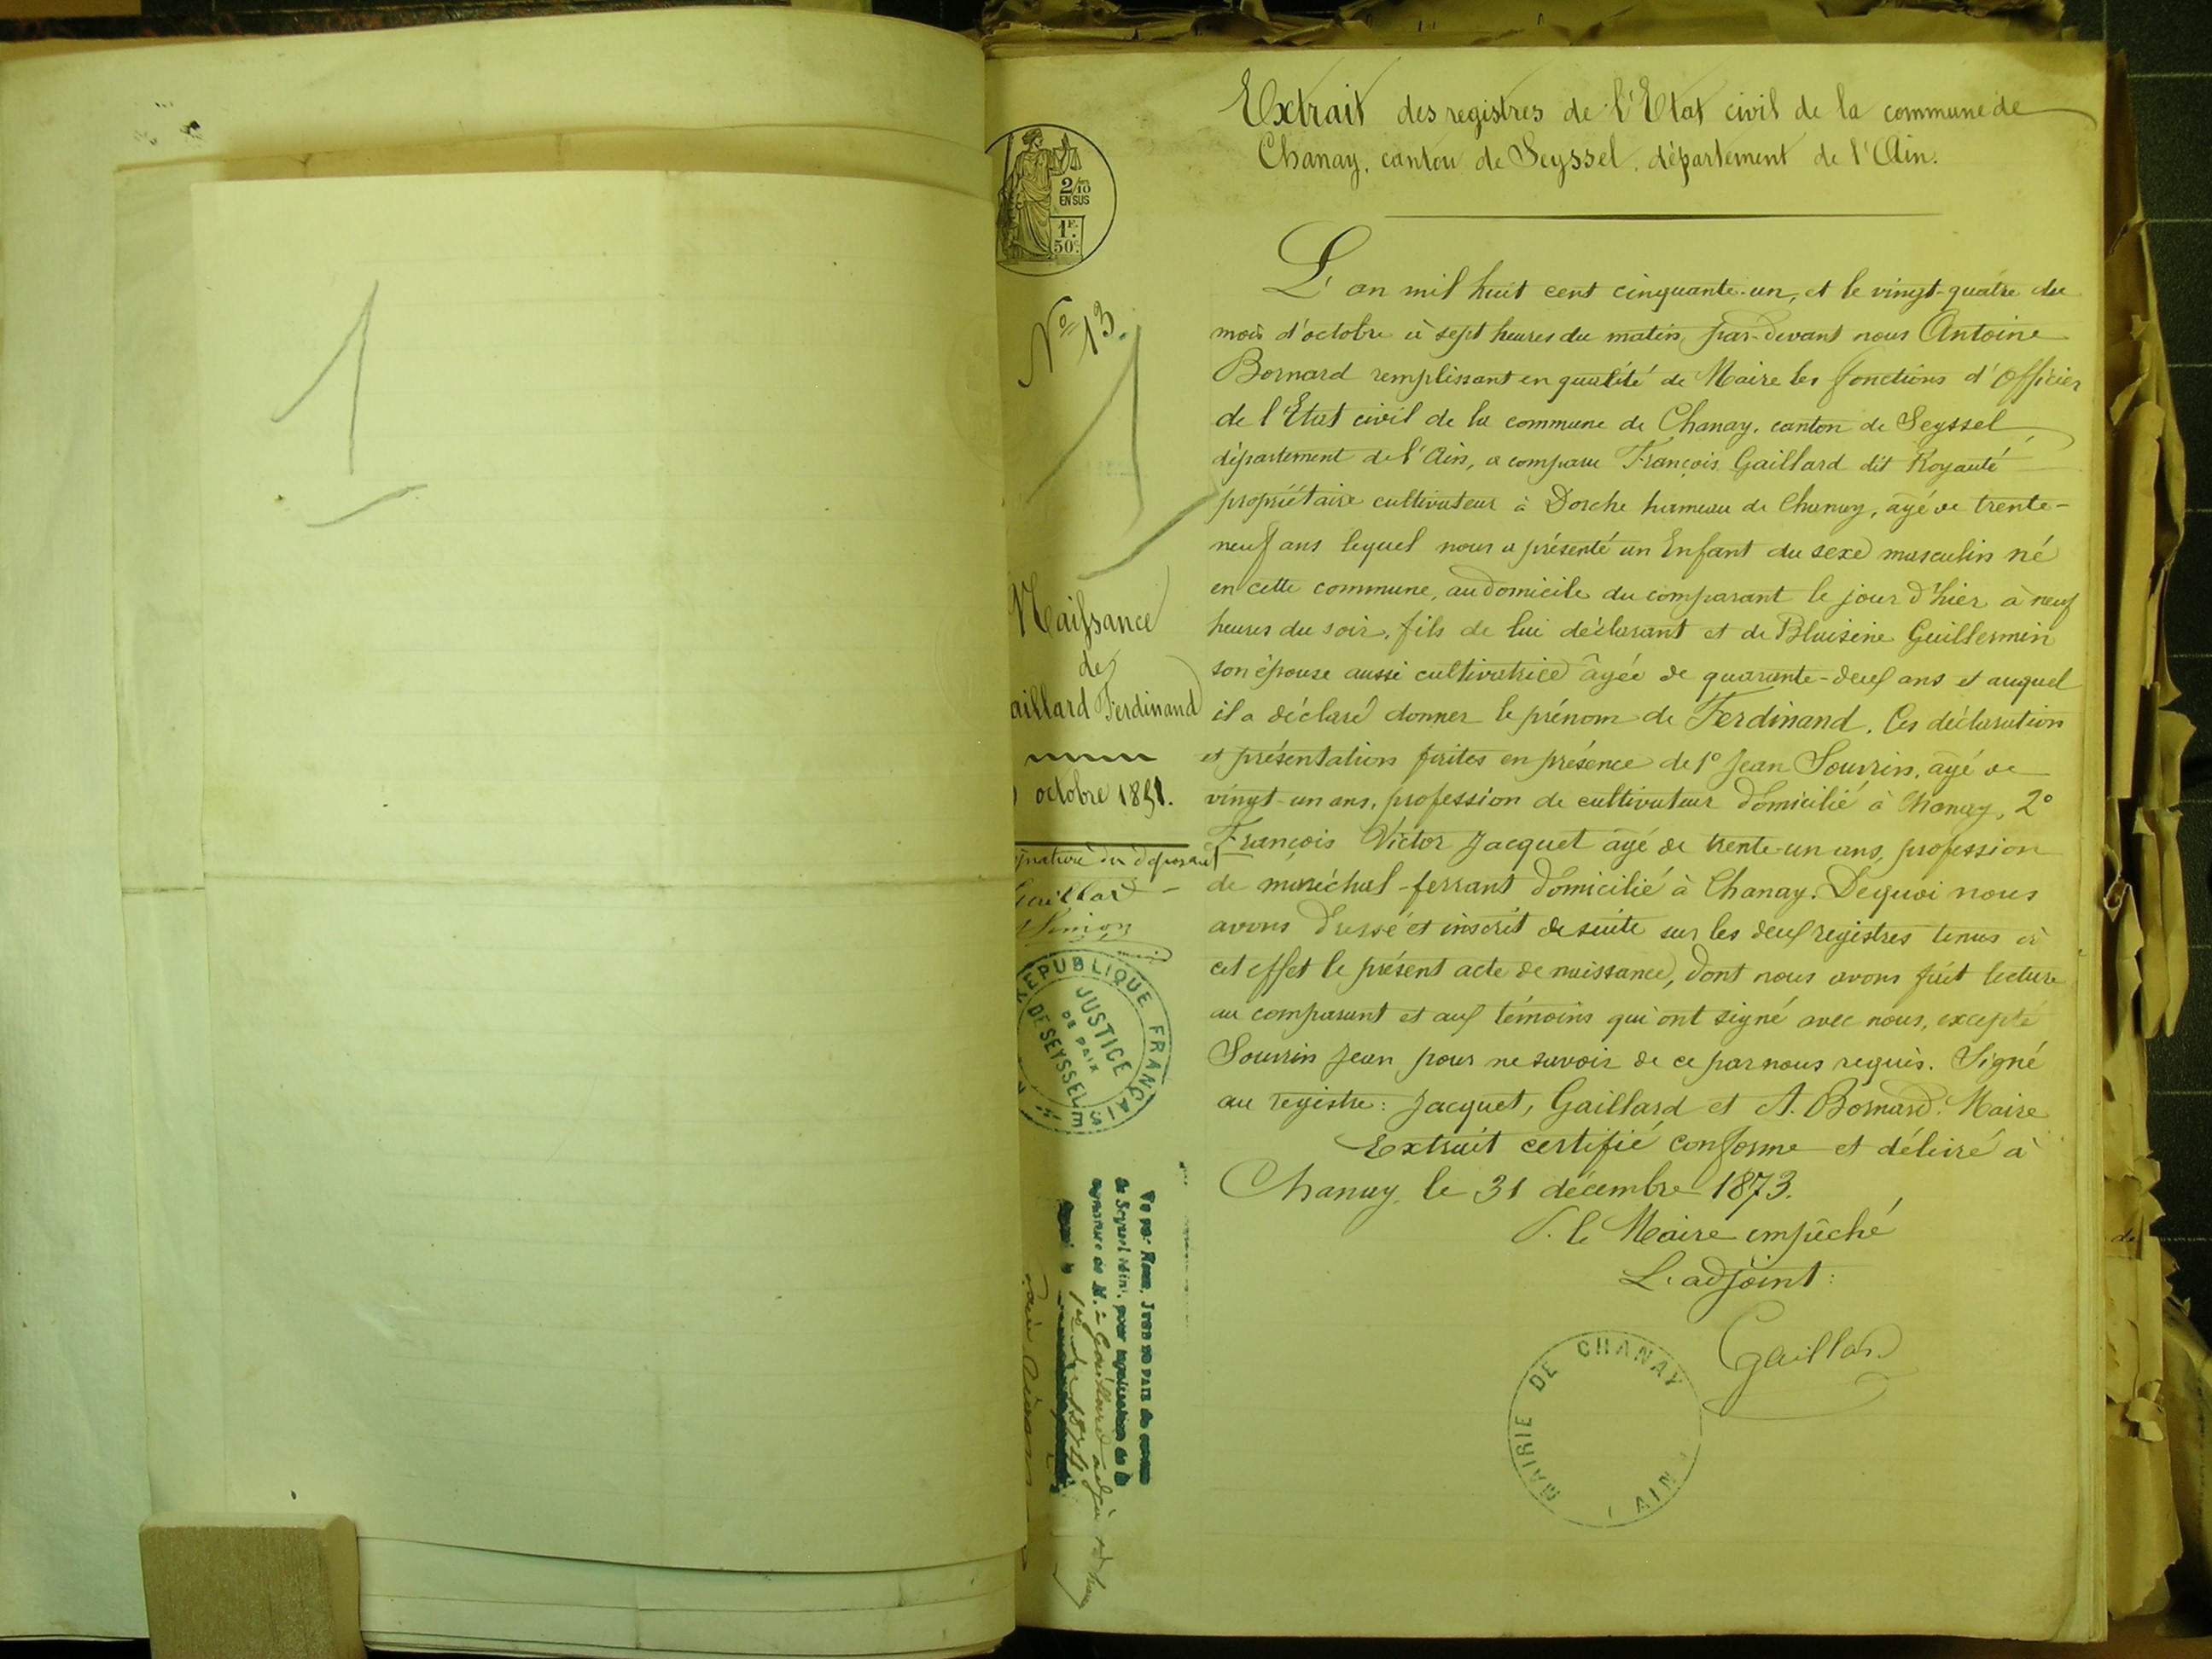 1
Extrait des registres de l'Etat civil de la commune de
Chanay, canton de Seyssel, département de l'Ain.
2/10
EN SUS
1F.
50c.
No 13.
1
Naissance
de
aillard Ferdinand
octobre 1851.
gnature du déposant
Gaillard
Simon
REPUBLIQUE FRANÇAISE
JUSTICE
DE PAIX
DE SEYSSEL
L'an mil huit cent cinquante-un, et le vingt-quatre du
mois d'octobre à sept heures du matin, par-devant nous Antoine
Bornard remplissant en qualité de Maire les fonctions d'officier
de l'Etat civil de la commune de Chanay, canton de Seyssel
département de l'Ain, a comparu François Gaillard dit Royauté
propriétaire cultivateur à Dorche hameau de Chanay, âgé de trente-
neuf ans lequel nous a présenté un Enfant du sexe masculin né
en cette commune, au domicile du comparant le jour d'hier à neuf
heures du soir, fils de lui déclarant et de Blaisine Guillermin
son épouse aussi cultivatrice âgée de quarante-deux ans et auquel
il a déclaré donner le prénom de Ferdinand. Ces déclaration
et présentation faites en présence de 1° Jean Souvrin, âgé de
vingt-un ans, profession de cultivateur domicilié à Chanay, 2°
François Victor Jacquet âgé de trente-un ans, profession
de maréchal-ferrant domicilié à Chanay. De quoi nous
avons dressé et inscrit de suite sur les deux registres tenus à
cet effet le présent acte de naissance, dont nous avons fait lecture
au comparant et aux témoins qui ont signé avec nous, excepté
Souvrin Jean pour ne savoir de ce par nous requis. Signé
au registre: Jacquet, Gaillard et A. Bornard. Maire
Extrait certifié conforme et délivré à
Chanay, le 31 décembre 1873.
P. le Maire empêché
L'adjoint:
Gaillard
MAIRIE DE CHANAY
(AIN)
Vu par Nous, JUGE DE PAIX du canton
de Seyssel (Ain), pour légalisation de la
signature de M. Gaillard adjoint
1874